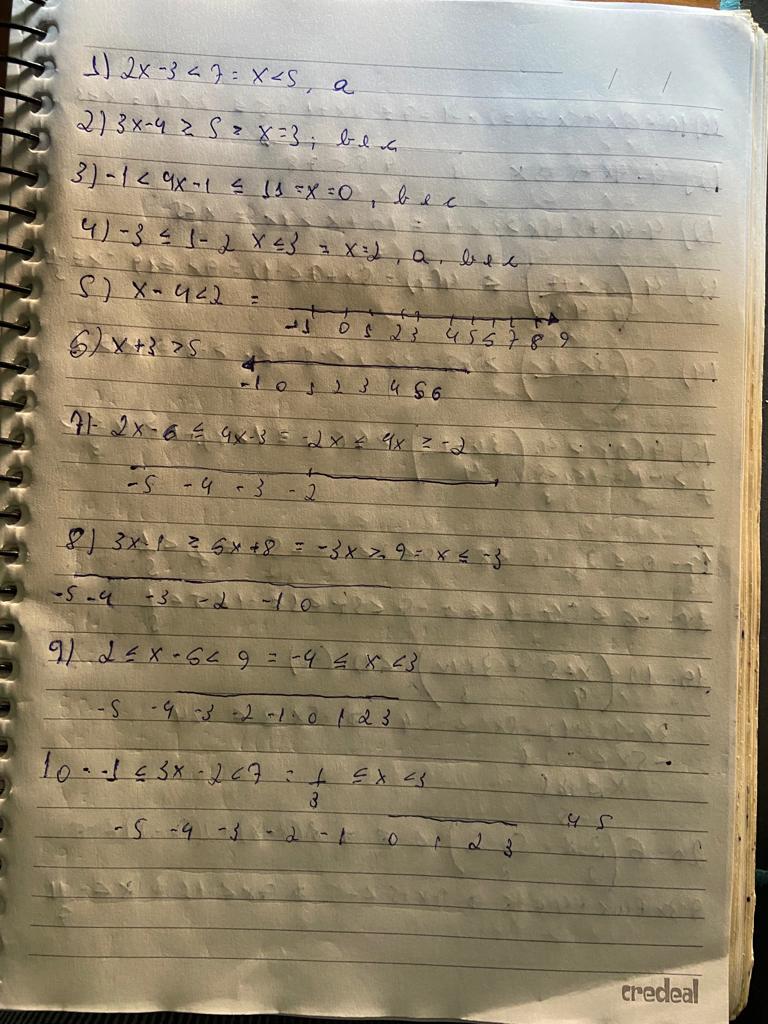 1) 2x-3 < 7 = x<5, a
/ /
2) 3x-4 ≥ 5 = x=3; b e c
3) -1 < 4x-1 ≤ 11 = x=0, b e c
4) -3 ≤ 1-2 x ≤3 = x=2, a, b e c
5) x-4<2 =
-1 0 1 2 3 4 5 6 7 8 9
6) x+3 >5
-1 0 1 2 3 4 5 6
7)- 2x-6 ≤ 4x-3 = -2x ≤ 4x ≥ -2
-5 -4 -3 -2
8) 3x-1 ≥ 6x+8 = -3x ≥ 9 = x ≤ -3
-5 -4 -3 -2 -1 0
9) 2 ≤ x-6< 9 = -4 ≤ x <3
-5 -4 -3 -2 -1 0 1 2 3
10 - -1 ≤ 3x-2<7 = 1/3 ≤ x <3
-5 -4 -3 -2 -1 0 1 2 3 4 5
credeal